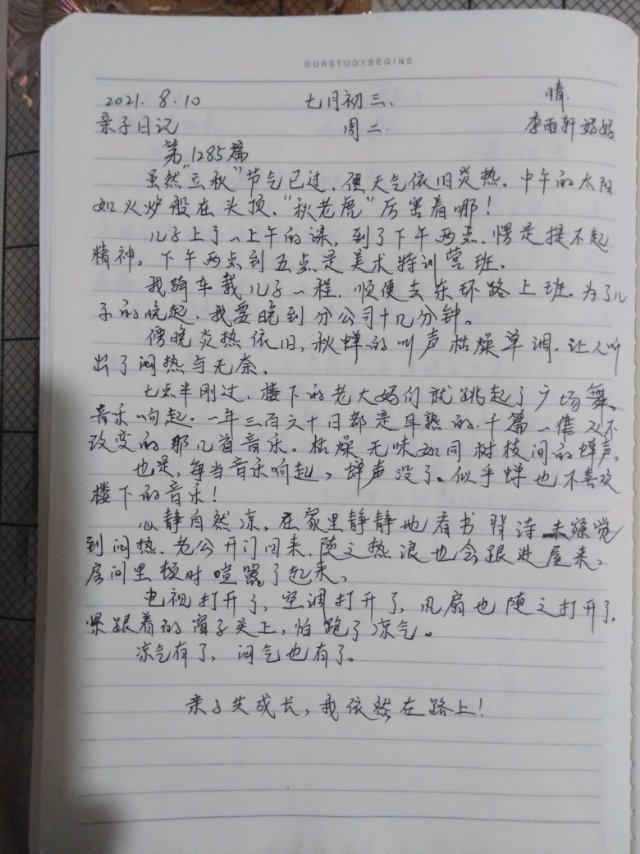 OURSTUDYBEGINS
2021. 8.10 七月初三. 晴.
亲子日记 周二. 李雨轩妈妈
第1285篇
虽然"立秋"节气已过,但天气依旧炎热。中午的太阳
如火炉般在头顶,"秋老虎"厉害着哪!
儿子上了一上午的课,到了下午两点,愣是提不起
精神。下午两点到五点是美术特训营班。
我骑车载儿子一程,顺便去东环路上班。为了儿
子的晚起,我要晚到分公司十几分钟。
傍晚炎热依旧,秋蝉的叫声枯燥单调,让人听
出了闷热与无奈。
七点半刚过,楼下的老大妈们就跳起了广场舞。
音乐响起,一年三百六十日都是耳熟的,千篇一律又不
改变的那几首音乐。枯燥无味如同树枝间的蝉声。
也是,每当音乐响起,蝉声没了。似乎蝉也不喜欢
楼下的音乐!
心静自然凉。在家里静静地看书背诗未觉
到闷热。老公开门回来,随之热浪也会跟进屋来。
房间里顿时喧嚣了起来。
电视打开了,空调打开了,风扇也随之打开了,
紧跟着的窗子关上,怕跑了凉气。
凉气有了,闷气也有了。
亲子共成长,我依然在路上!